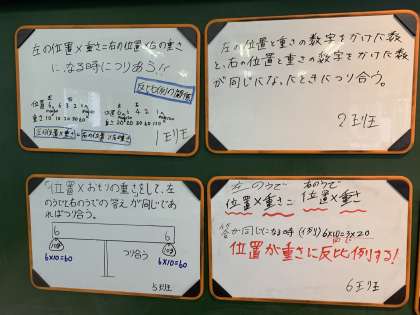 左の位置×重さ=右の位置×右の重さ
になる時につりあう!!
反比例の関係
位置
重さ 10 10 20 30 60
左の位置×重さ=右の位置×右の重さ
1班
左の位置と重さの数字をかけた数
と、右の位置と重さの数字をかけた数
が同じになったときにつり合う。
2班
位置×おもりの重さをして、左
のうでと右のうでの答えが同じであ
ればつり合う。
6
6
つり合う
6×10=60
6×10=60
5班
左のうで
右のうで
位置×重さ=位置×重さ
答えが同じになる時 (例) 6×10=3×20
位置が重さに反比例する!
6班